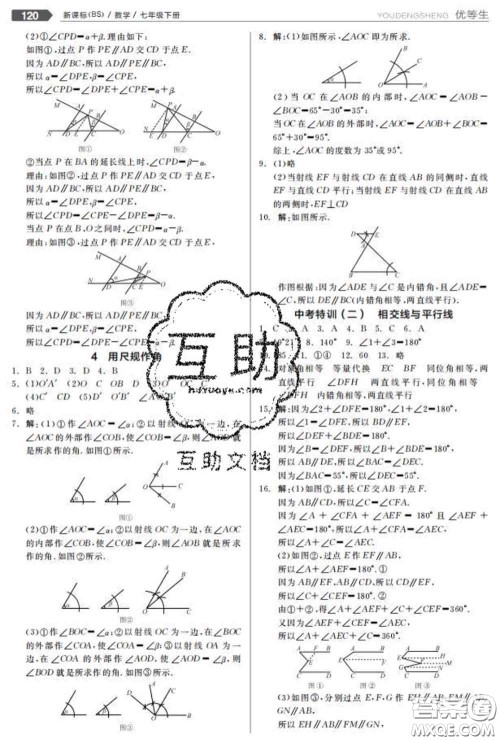 120 新课标(BS)/数学/七年级下册
YOUDENGSHENG 优等生
(2)①∠CPD=α+β.理由如下:
如图①,过点 P 作 PE∥AD 交 CD 于点 E,
因为 AD∥BC,所以 AD∥PE∥BC,
所以∠α=∠DPE,∠β=∠CPE,
所以∠CPD=∠DPE+∠CPE=α+β.
图① 图②
②当点 P 在 BA 的延长线上时,∠CPD=β-α.
理由:如图②,过点 P 作 PE∥AD 交 CD 于点 E,
因为 AD∥BC,所以 AD∥PE∥BC,
所以∠α=∠DPE,∠β=∠CPE,
所以∠CPD=∠CPE-∠DPE=β-α.
当点 P 在点 B、O 之间时,∠CPD=α-β.
理由:如图③,过点 P 作 PE∥AD 交 CD 于点 E,
图③
4 用尺规作角
1. B 2. D 3. D 4. B
6. 略
7. 解:(1)①作∠AOC=∠α;②以射线 OC 为一边,在∠AOC
的外部作∠COB,使∠COB=∠β,则∠AOB
就是所求作的角.如图①所示.
图①
(2)①作∠AOC=∠α;②以射线 OC 为一边,在∠AOC
的内部作∠COB,使∠COB=∠β,则∠AOB 就是所求
作的角.如图②所示.
图②
(3)①作∠AOB=∠α;②以射线 OC 为一边,在∠BOC
的外部作∠COA,使∠COA=∠α;③以射线 OA 为一边,
在∠COA 的外部作∠AOD,使∠AOD=∠β,则
∠BOD 就是所求作的角.如图③所示.
图③
8. 解:(1)如图所示,∠AOC 即为所求.
(2)当 OC 在∠AOB 的内部时,∠AOC=∠AOB-
∠BOC=65°-30°=35°;
当 OC 在∠AOB 的外部时,∠AOC=∠AOB+∠BOC=
65°+30°=95°.
综上,∠AOC 的度数为 35°或 95°.
9. (1)略
(2)当射线 EF 与射线 CD 在直线 AB 的同侧时,直线
EF 与直线 CD 平行;当射线 EF 与射线 CD 在直线 AB
的两侧时,EF⊥CD
10. 解:如图所示.
作图根据:因为∠ADE 与∠C 是内错角,且∠ADE=∠C,
所以 DE∥BC(内错角相等,两直线平行).
中考特训(二) 相交线与平行线
11. ①④ 12. 60 13. 略
对顶角相等 等量代换 EC BF 同位角相等,两
直线平行 ∠DFH 两直线平行,同位角相等
∠DFH 内错角相等,两直线平行
15. 解:因为∠2+∠DFE=180°,∠1+∠2=180°,
所以∠1=∠DFE,所以 BD∥EF,
所以∠DEF=∠BDE,
因为∠DEF=∠B,所以∠B=∠BDE,
所以 AB∥DE,所以∠BAC=∠DEC,
因为∠BAC=55°,所以∠DEC=55°.
16. 解:(1)如图①,延长 CE 交 AB 于点 F,
因为∠A+∠CFA+∠AEF=180°且∠AEF+
∠AEC=180°,所以∠A+∠CFA=∠AEC,
因为 AB∥CD,所以∠C=∠CFA,
所以∠A+∠C=∠AEC.
(2)如图②,过点 E 作 EF∥AB,
因为 AB∥EF,AB∥CD,所以 CD∥EF,
所以∠C+∠CEF=180°,②
由①+②,得∠A+∠AEF+∠C+∠CEF=360°,
又因为∠AEF+∠CEF=∠AEC,
所以∠A+∠AEC+∠C=360°.
图① 图② 图③
所以 EH∥AB∥FM∥
互助
huzuoye.com
互助文档
答案圈
MXQE.COM